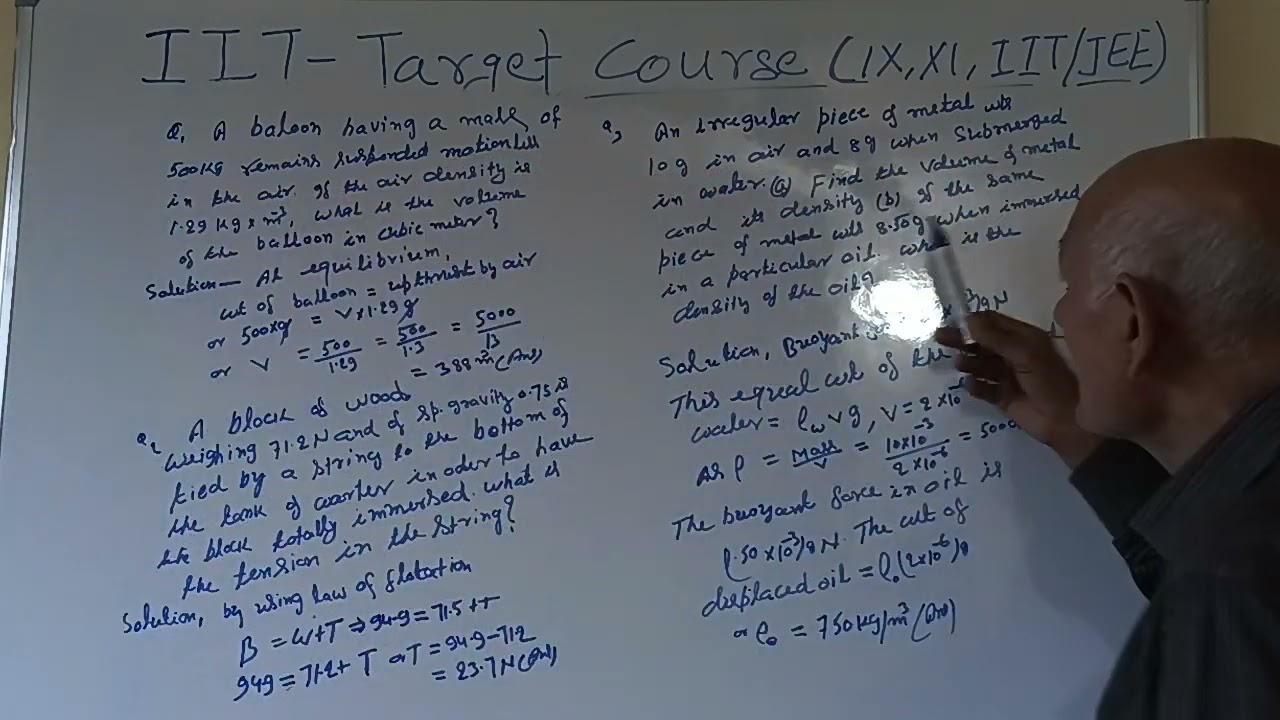 IIT-Target Course (IX, XI, IIT/JEE)
Q, A baloon having a mass of
500Kg remains suspended motionless
in the air. If the air density is
1.29 Kg x m⁻³, what is the volume
of the balloon in cubic meter?
Solution - At equilibrium,
wt of balloon = upthrust by air
or 500xg = V x 1.29 g
or V = 500/1.29 = 500/1.3 = 5000/13
= 388 m³ (Ans)
Q2 A block of wood
weighing 71.2 N and of sp. gravity 0.75 is
tied by a string to the bottom of
the tank of warter in oder to have
the block totally immersed. what is
the tension in the string?
Solution, by using law of flotation
B = W+T ⇒ 94.9 = 71.5 + T
949 = 71.2 + T or T = 949-712
= 23.7 N (Ans)
Q3 An irregular piece of metal wts
10 g in air and 8g when submerged
in water. (a) Find the volume of metal
and its density (b) if the same
piece of metal wts 8.50g when immersed
in a particular oil. what is the
density of the oil?
Solution, Buoyant
This equal wt of the
water = ρw v g, V = 2 x 10⁻⁶
as ρ = Mass/V = 10x10⁻³/2 x 10⁻⁶ = 5000
The buoyant force in oil is
(.50 x 10⁻³)g N. The wt of
displaced oil = ρo (2x10⁻⁶)g
or ρo = 750 kg/m³ (Ans)